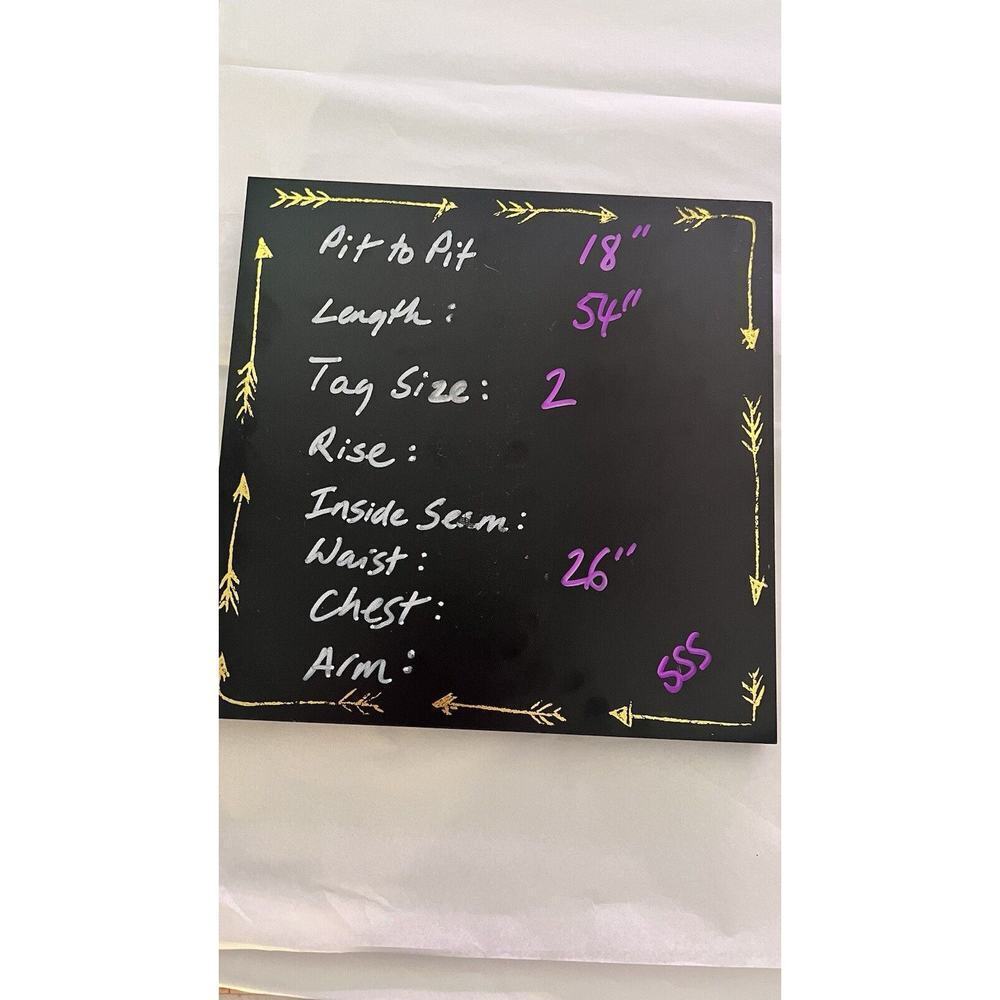 Pit to Pit 18"
Length: 54"
Tag Size: 2
Rise:
Inside Seam:
Waist: 26"
Chest:
Arm:
SSS